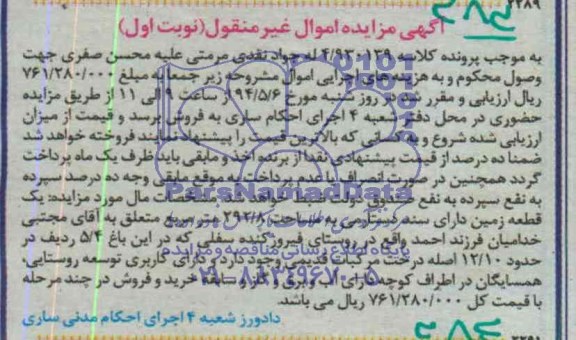 ۲۲۸۹
آگهی مزایده اموال غیر منقول (نوبت اول)
به موجب پرونده کلاسه ۴/۹۳۰۱۳۹ له جواد نقدی مرمتی علیه محسن صفری جهت
وصول محکوم و به هزینه های اجرایی اموال مشروحه زیر جمعا به مبلغ ۷۶۱/۲۸۰/۰۰۰
ریال ارزیابی و مقرر شد در روز شنبه مورخ ۹۴/۵/۶ از ساعت ۹ الی ۱۱ از طریق مزایده
حضوری در محل دفتر شعبه ۴ اجرای احکام ساری به فروش برسد و قیمت از میزان
ارزیابی شده شروع و به کسانی که بالاترین قیمت را پیشنهاد نمایند فروخته خواهد شد
ضمنا ده درصد از قیمت پیشنهادی نقدا از برنده اخذ و مابقی باید ظرف یک ماه پرداخت
گردد همچنین در صورت انصراف یا عدم پرداخت به موقع مابقی وجه ده درصد سپرده
به نفع سپرده به نفع صندوق دولت ضبط خواهد شد. مشخصات مال مورد مزایده: یک
قطعه زمین دارای سند دستارمی به مساحت ۲۹۲/۸ متر مربع متعلق به آقای مجتبی
خدامیان فرزند احمد واقع در روستای فیروزکنده سفلی که در این باغ ۵/۴ ردیف در
حدود ۱۲/۱۰ اصله درخت مرکبات قدیمی وجود دارد و دارای کاربری توسعه روستایی،
همسایگان در اطراف کوچه دارای آب و برق و گاز و سابقه خرید و فروش در چند مرحله
با قیمت کل ۷۶۱/۲۸۰/۰۰۰ ریال می باشد.
دادورز شعبه ۴ اجرای احکام مدنی ساری
ParsNamadData
پایگاه اطلاع رسانی مناقصه و مزایده
۰۲۱-۸۸۳۴۹۶۷۰-۵
۲۲۹۱